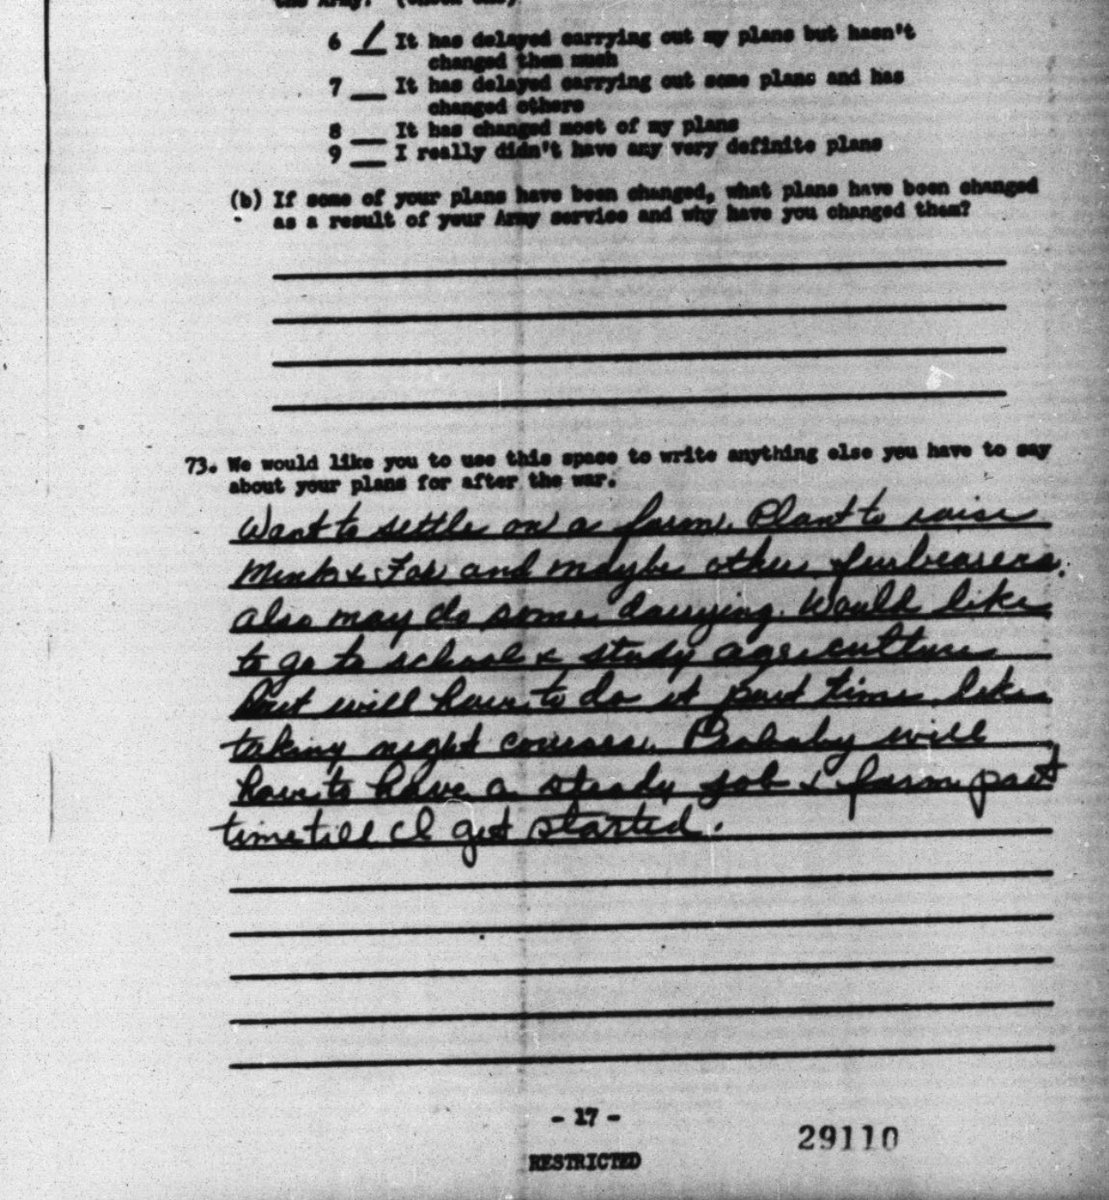 the Army? (Check one)
6 / It has delayed carrying out my plans but hasn't
changed them much
7 __ It has delayed carrying out some plans and has
changed others
8 __ It has changed most of my plans
9 __ I really didn't have any very definite plans
(b) If some of your plans have been changed, what plans have been changed
as a result of your Army service and why have you changed them?
73. We would like you to use this space to write anything else you have to say
about your plans for after the war.
Want to settle on a farm. Plant to raise
Mink & Fox and maybe other furbearers.
also may do some darrying. Would like
to go to school & study agriculture
But will have to do it part time like
taking night courses. Probably will
have to have a steady job & farm part
time till I get started.
- 17 -
29110
RESTRICTED